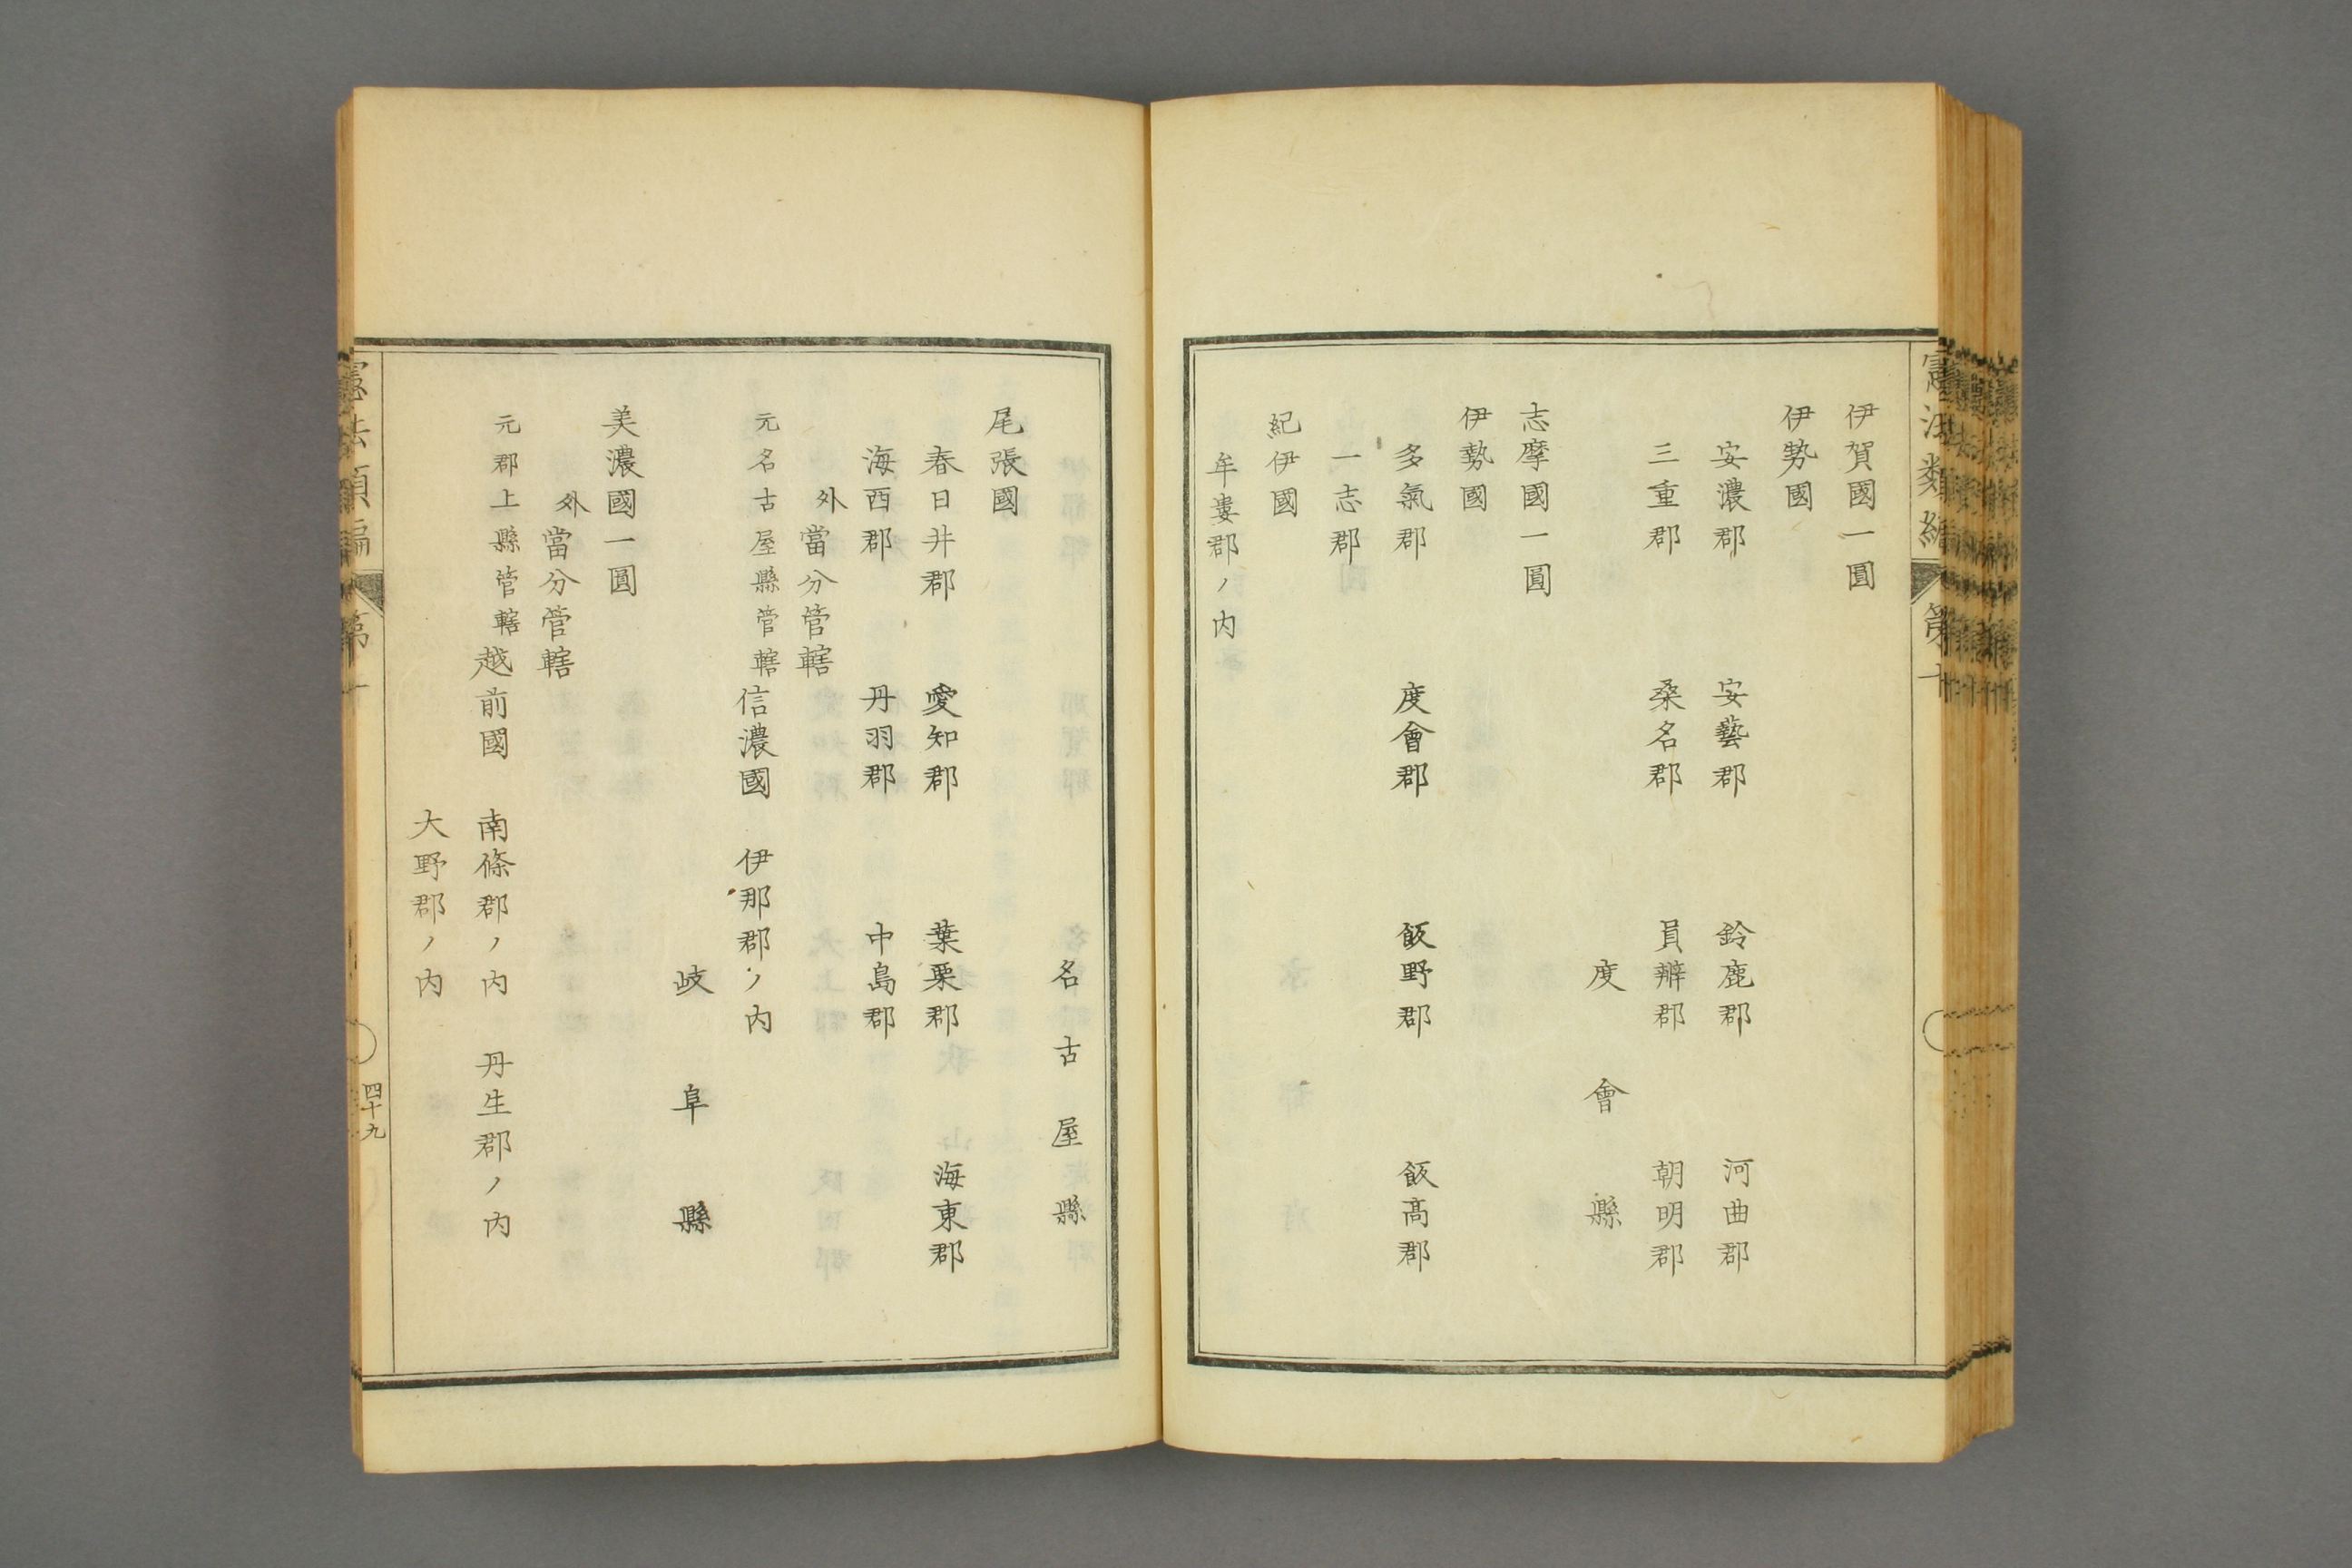 伊賀國一圓
伊勢國
安濃郡 安藝郡 鈴鹿郡 河曲郡
三重郡 桑名郡 員辨郡 朝明郡
度會縣
志摩國一圓
伊勢國
多氣郡 度會郡 飯野郡 飯高郡
一志郡
紀伊國
牟婁郡ノ内
名古屋縣
尾張國
春日井郡 愛知郡 葉栗郡 海東郡
海西郡 丹羽郡 中島郡
外當分管轄
元名古屋縣管轄信濃國 伊那郡ノ内
岐阜縣
美濃國一圓
外當分管轄
元郡上縣管轄越前國 南條郡ノ内 丹生郡ノ内
大野郡ノ内
憲法類編 第十 四十九